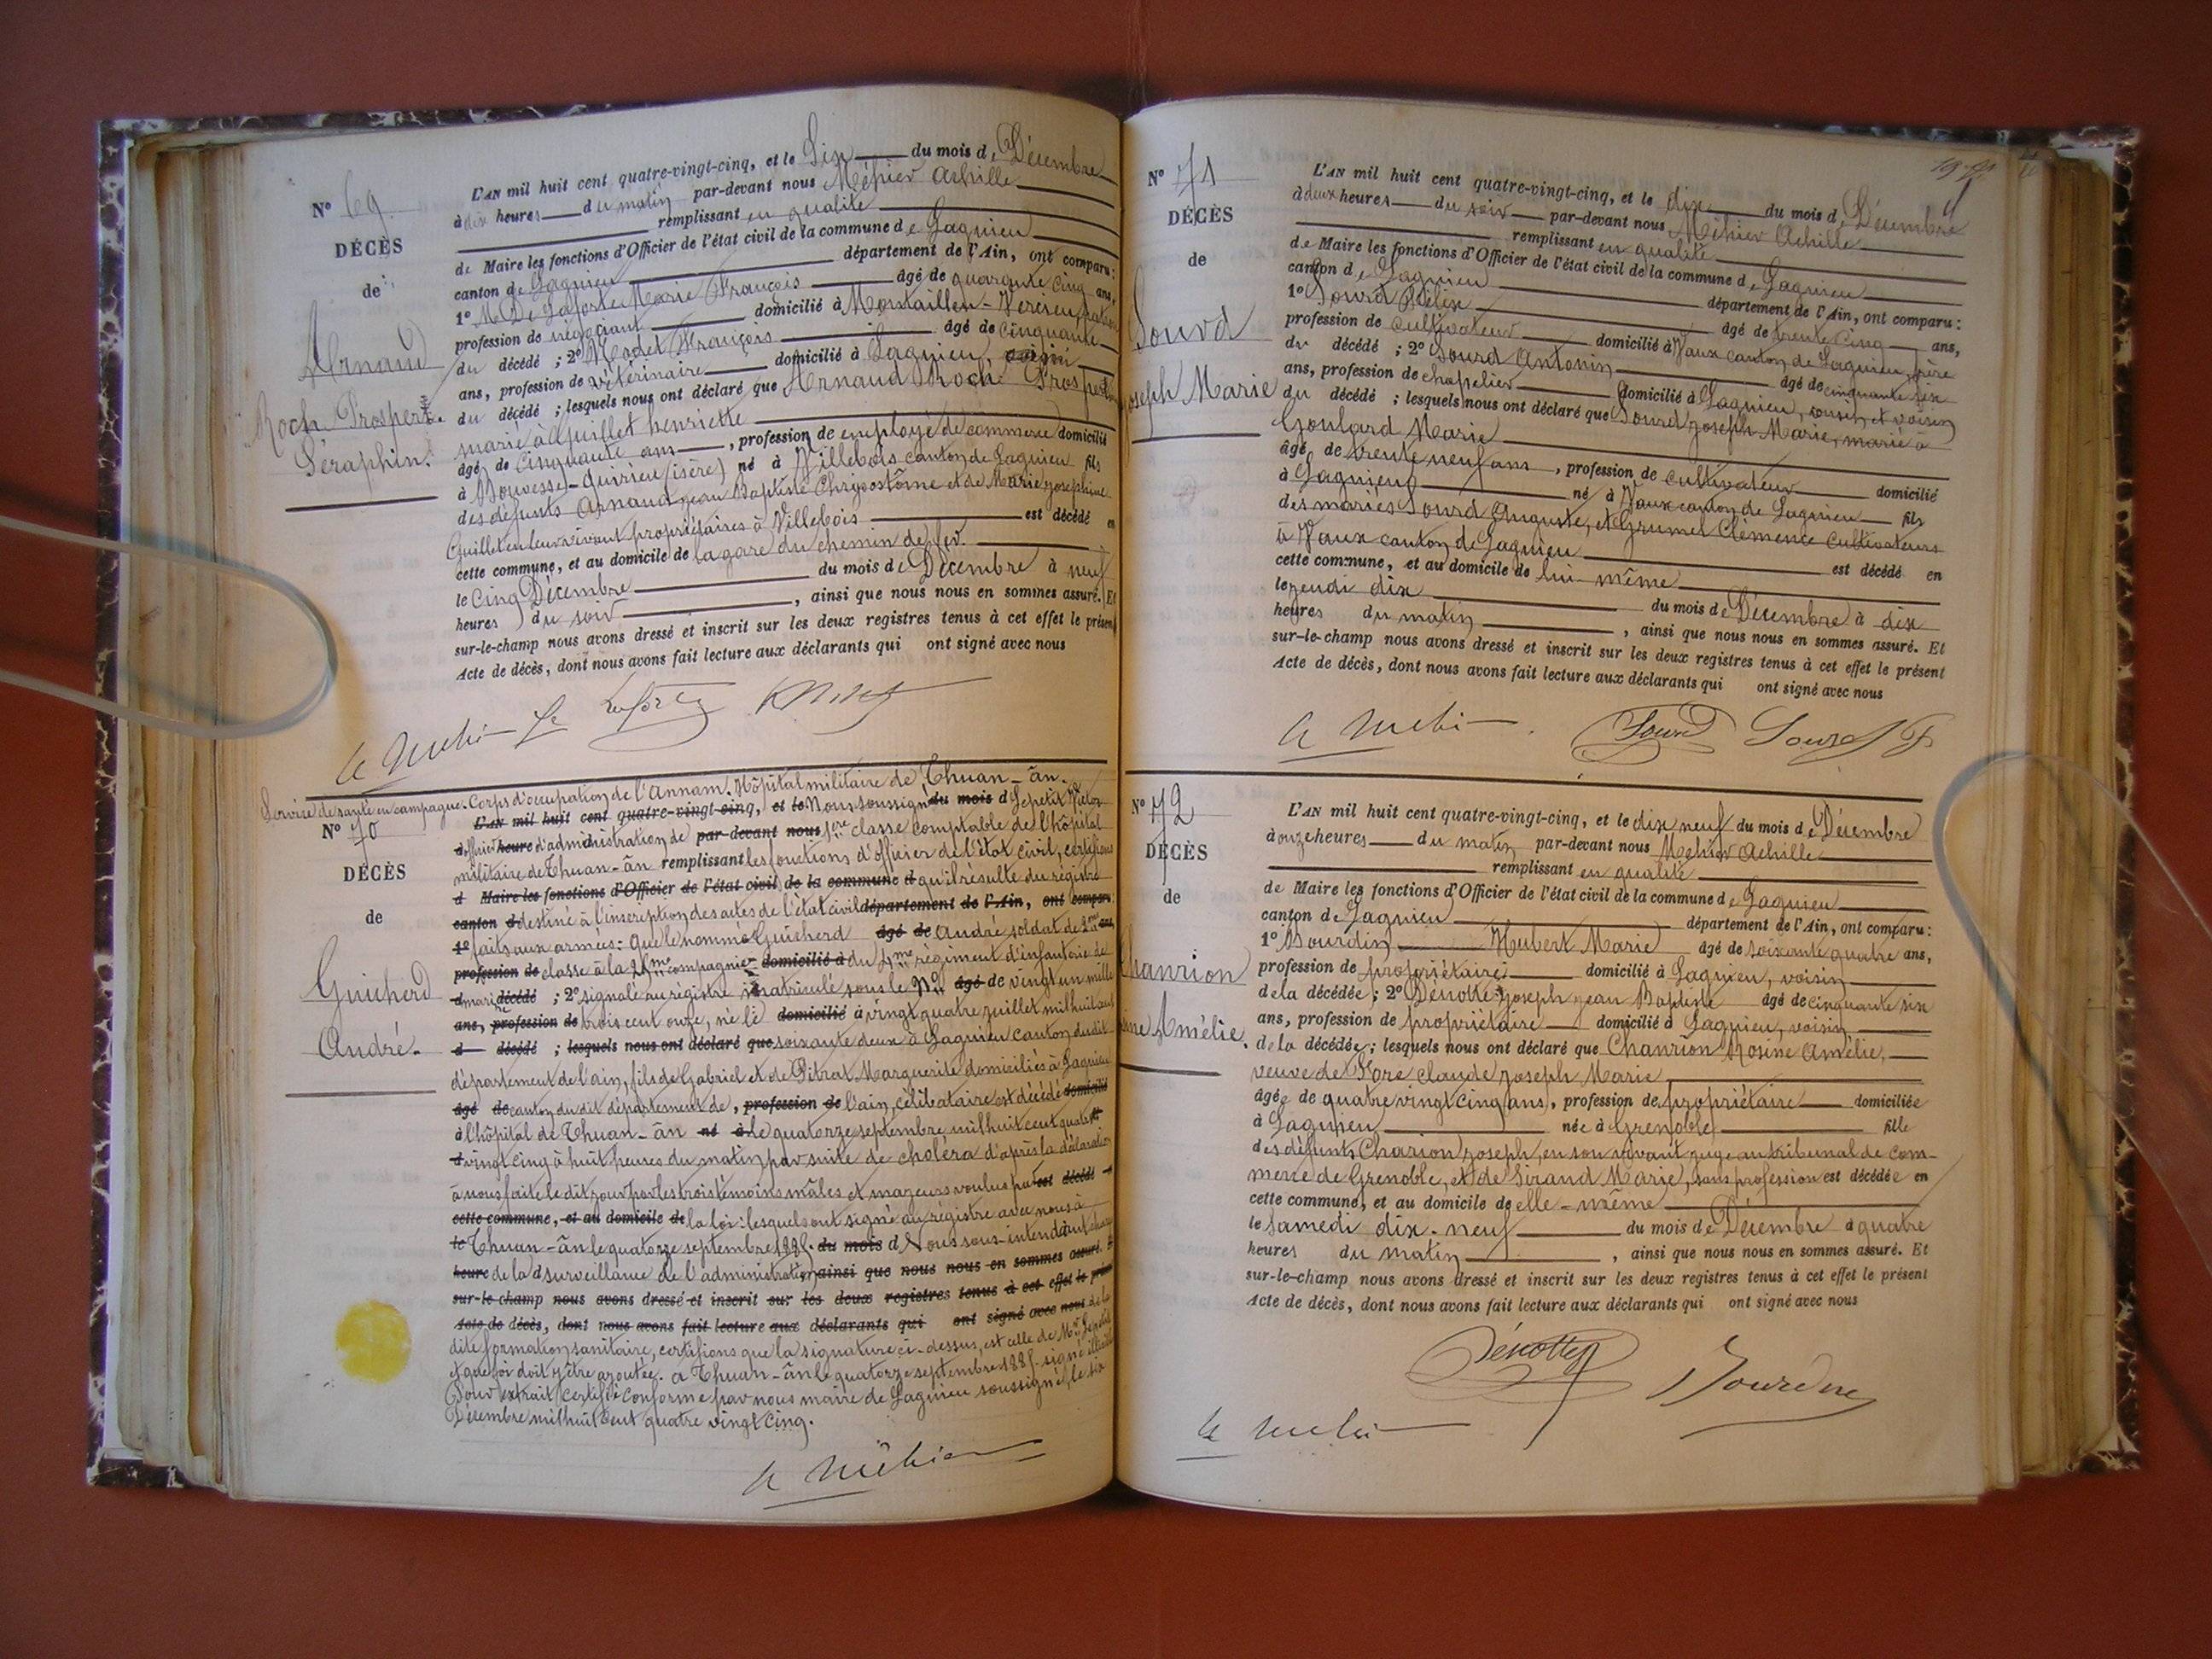 N° 69.
DÉCÈS
de
Arnaud
Roch Prosper
Séraphin.
L'AN mil huit cent quatre-vingt-cinq, et le Six du mois de Décembre
à dix heures du matin par-devant nous Méhier Achille
remplissant en qualité
de Maire les fonctions d'Officier de l'état civil de la commune de Lagnieu
canton de Lagnieu département de l'Ain, ont comparu:
1° Marie François âgé de quarante cinq ans,
profession de négociant domicilié à Montalieu-Vercieu
du décédé ; 2° François âgé de cinquante
ans, profession de vétérinaire domicilié à Lagnieu, voisin
du décédé ; lesquels nous ont déclaré que Arnaud Roch Prosper
marié à Quillet henriette
âgé de Cinquante ans, profession de employé de commerce domicilié
à Bouvesse-Quirieu (isère) né à Villebois canton de Lagnieu fils
des défunts Arnaud jean Baptiste Chrysostôme et de Marie josephine
Quillet en leur vivant propriétaires à Villebois est décédé en
cette commune, et au domicile de la gare du chemin de fer.
le Cinq Décembre du mois de Décembre à neuf
heures du soir, ainsi que nous nous en sommes assuré. Et
sur-le-champ nous avons dressé et inscrit sur les deux registres tenus à cet effet le présent
Acte de décès, dont nous avons fait lecture aux déclarants qui ont signé avec nous
Service de santé en campagne. Corps d'occupation de l'Annam. Hôpital militaire de Thuan-ân.
N° 70
DÉCÈS
de
Guicherd
André.
L'AN mil huit cent quatre-vingt-cinq, et le Nous soussigné du mois d Lepetit Victor
d'officier heure d'administration de par-devant nous 1ère classe comptable de l'hôpital
militaire de Thuan-ân remplissant les fonctions d'officier de l'état civil, certifions
d Maire les fonctions d'Officier de l'état civil de la commune d qu'il résulte du registre
canton d destiné à l'inscription des actes de l'état civil département de l'Ain, ont comparu:
1° faits aux armées: que le nommé Guicherd âgé de André soldat de 2me ans,
profession de classe à la compagnie domicilié à du 4me régiment d'infanterie de
d marine décédé ; 2° signalé au registre matricule sous le N° âgé de vingt un mille
ans, profession de trois cent onze, né le domicilié à vingt quatre juillet mil huit cent
d décédé ; lesquels nous ont déclaré que soixante deux à Lagnieu canton dudit
département de l'ain, fils de Gabriel et de Pitrat Marguerite domiciliés à Lagnieu
âgé de canton du dit département de, profession de l'ain, célibataire est décédé domicilié
à l'hôpital de Thuan-ân né à le quatorze septembre mil huit cent quatre
d vingt cinq à huit heures du matin par suite de choléra d'après la déclaration
à nous faite le dit jour par les trois témoins mâles et majeurs voulus par est décédé
cette commune, et au domicile de la loi: lesquels ont signé au registre avec nous à
le Thuan-ân le quatorze septembre 1885. du mois d Nous sous-intendant
heure de la d surveillance de l'administration ainsi que nous nous en sommes assuré. Et
sur-le-champ nous avons dressé et inscrit sur les deux registres tenus à cet effet le présent
Acte de décès, dont nous avons fait lecture aux déclarants qui ont signé avec nous de la
dite formation sanitaire, certifions que la signature ci-dessus, est celle de Mr Lepetit
et que foi doit y être ajoutée. à Thuan-ân le quatorze septembre 1885. signé illisible
Pour extrait certifié conforme par nous maire de Lagnieu soussigné, le six
Décembre mil huit cent quatre vingt cinq.
N° 71
DÉCÈS
de
Sourd
Joseph Marie
L'AN mil huit cent quatre-vingt-cinq, et le dix du mois de Décembre
à deux heures du soir par-devant nous Méhier Achille
remplissant en qualité
de Maire les fonctions d'Officier de l'état civil de la commune de Lagnieu
canton de Lagnieu département de l'Ain, ont comparu:
1° Sourd Félix âgé de trente cinq ans,
profession de cultivateur domicilié à Vaux canton de Lagnieu, frère
du décédé ; 2° Sourd Antonin âgé de cinquante six
ans, profession de chapelier domicilié à Lagnieu, cousin et voisin
du décédé ; lesquels nous ont déclaré que Sourd joseph Marie, marié à
Goulard Marie
âgé de trente neuf ans, profession de cultivateur domicilié
à Lagnieu né à Vaux canton de Lagnieu fils
des mariés Sourd Auguste, et Grumel Clémence cultivateurs
à Vaux canton de Lagnieu est décédé en
cette commune, et au domicile de lui-même
le jeudi dix du mois de Décembre à dix
heures du matin, ainsi que nous nous en sommes assuré. Et
sur-le-champ nous avons dressé et inscrit sur les deux registres tenus à cet effet le présent
Acte de décès, dont nous avons fait lecture aux déclarants qui ont signé avec nous
Sourd Sourd F
N° 72
DÉCÈS
de
Chanrion
Amélie.
L'AN mil huit cent quatre-vingt-cinq, et le dix neuf du mois de Décembre
à onze heures du matin par-devant nous Méhier Achille
remplissant en qualité
de Maire les fonctions d'Officier de l'état civil de la commune de Lagnieu
canton de Lagnieu département de l'Ain, ont comparu:
1° Bourdin Hubert Marie âgé de soixante quatre ans,
profession de propriétaire domicilié à Lagnieu, voisin
de la décédée ; 2° Dénotte joseph jean Baptiste âgé de cinquante six
ans, profession de propriétaire domicilié à Lagnieu, voisin
de la décédée ; lesquels nous ont déclaré que Chanrion Rosine Amélie,
veuve de Fore claude joseph Marie
âgée de quatre vingt cinq ans, profession de propriétaire domiciliée
à Lagnieu née à Grenoble fille
des défunts Charion joseph, en son vivant juge au tribunal de com-
merce de Grenoble, et de Sirand Marie, sans profession est décédée en
cette commune, et au domicile de elle-même
le samedi dix-neuf du mois de Décembre à quatre
heures du matin, ainsi que nous nous en sommes assuré. Et
sur-le-champ nous avons dressé et inscrit sur les deux registres tenus à cet effet le présent
Acte de décès, dont nous avons fait lecture aux déclarants qui ont signé avec nous
Dénotte